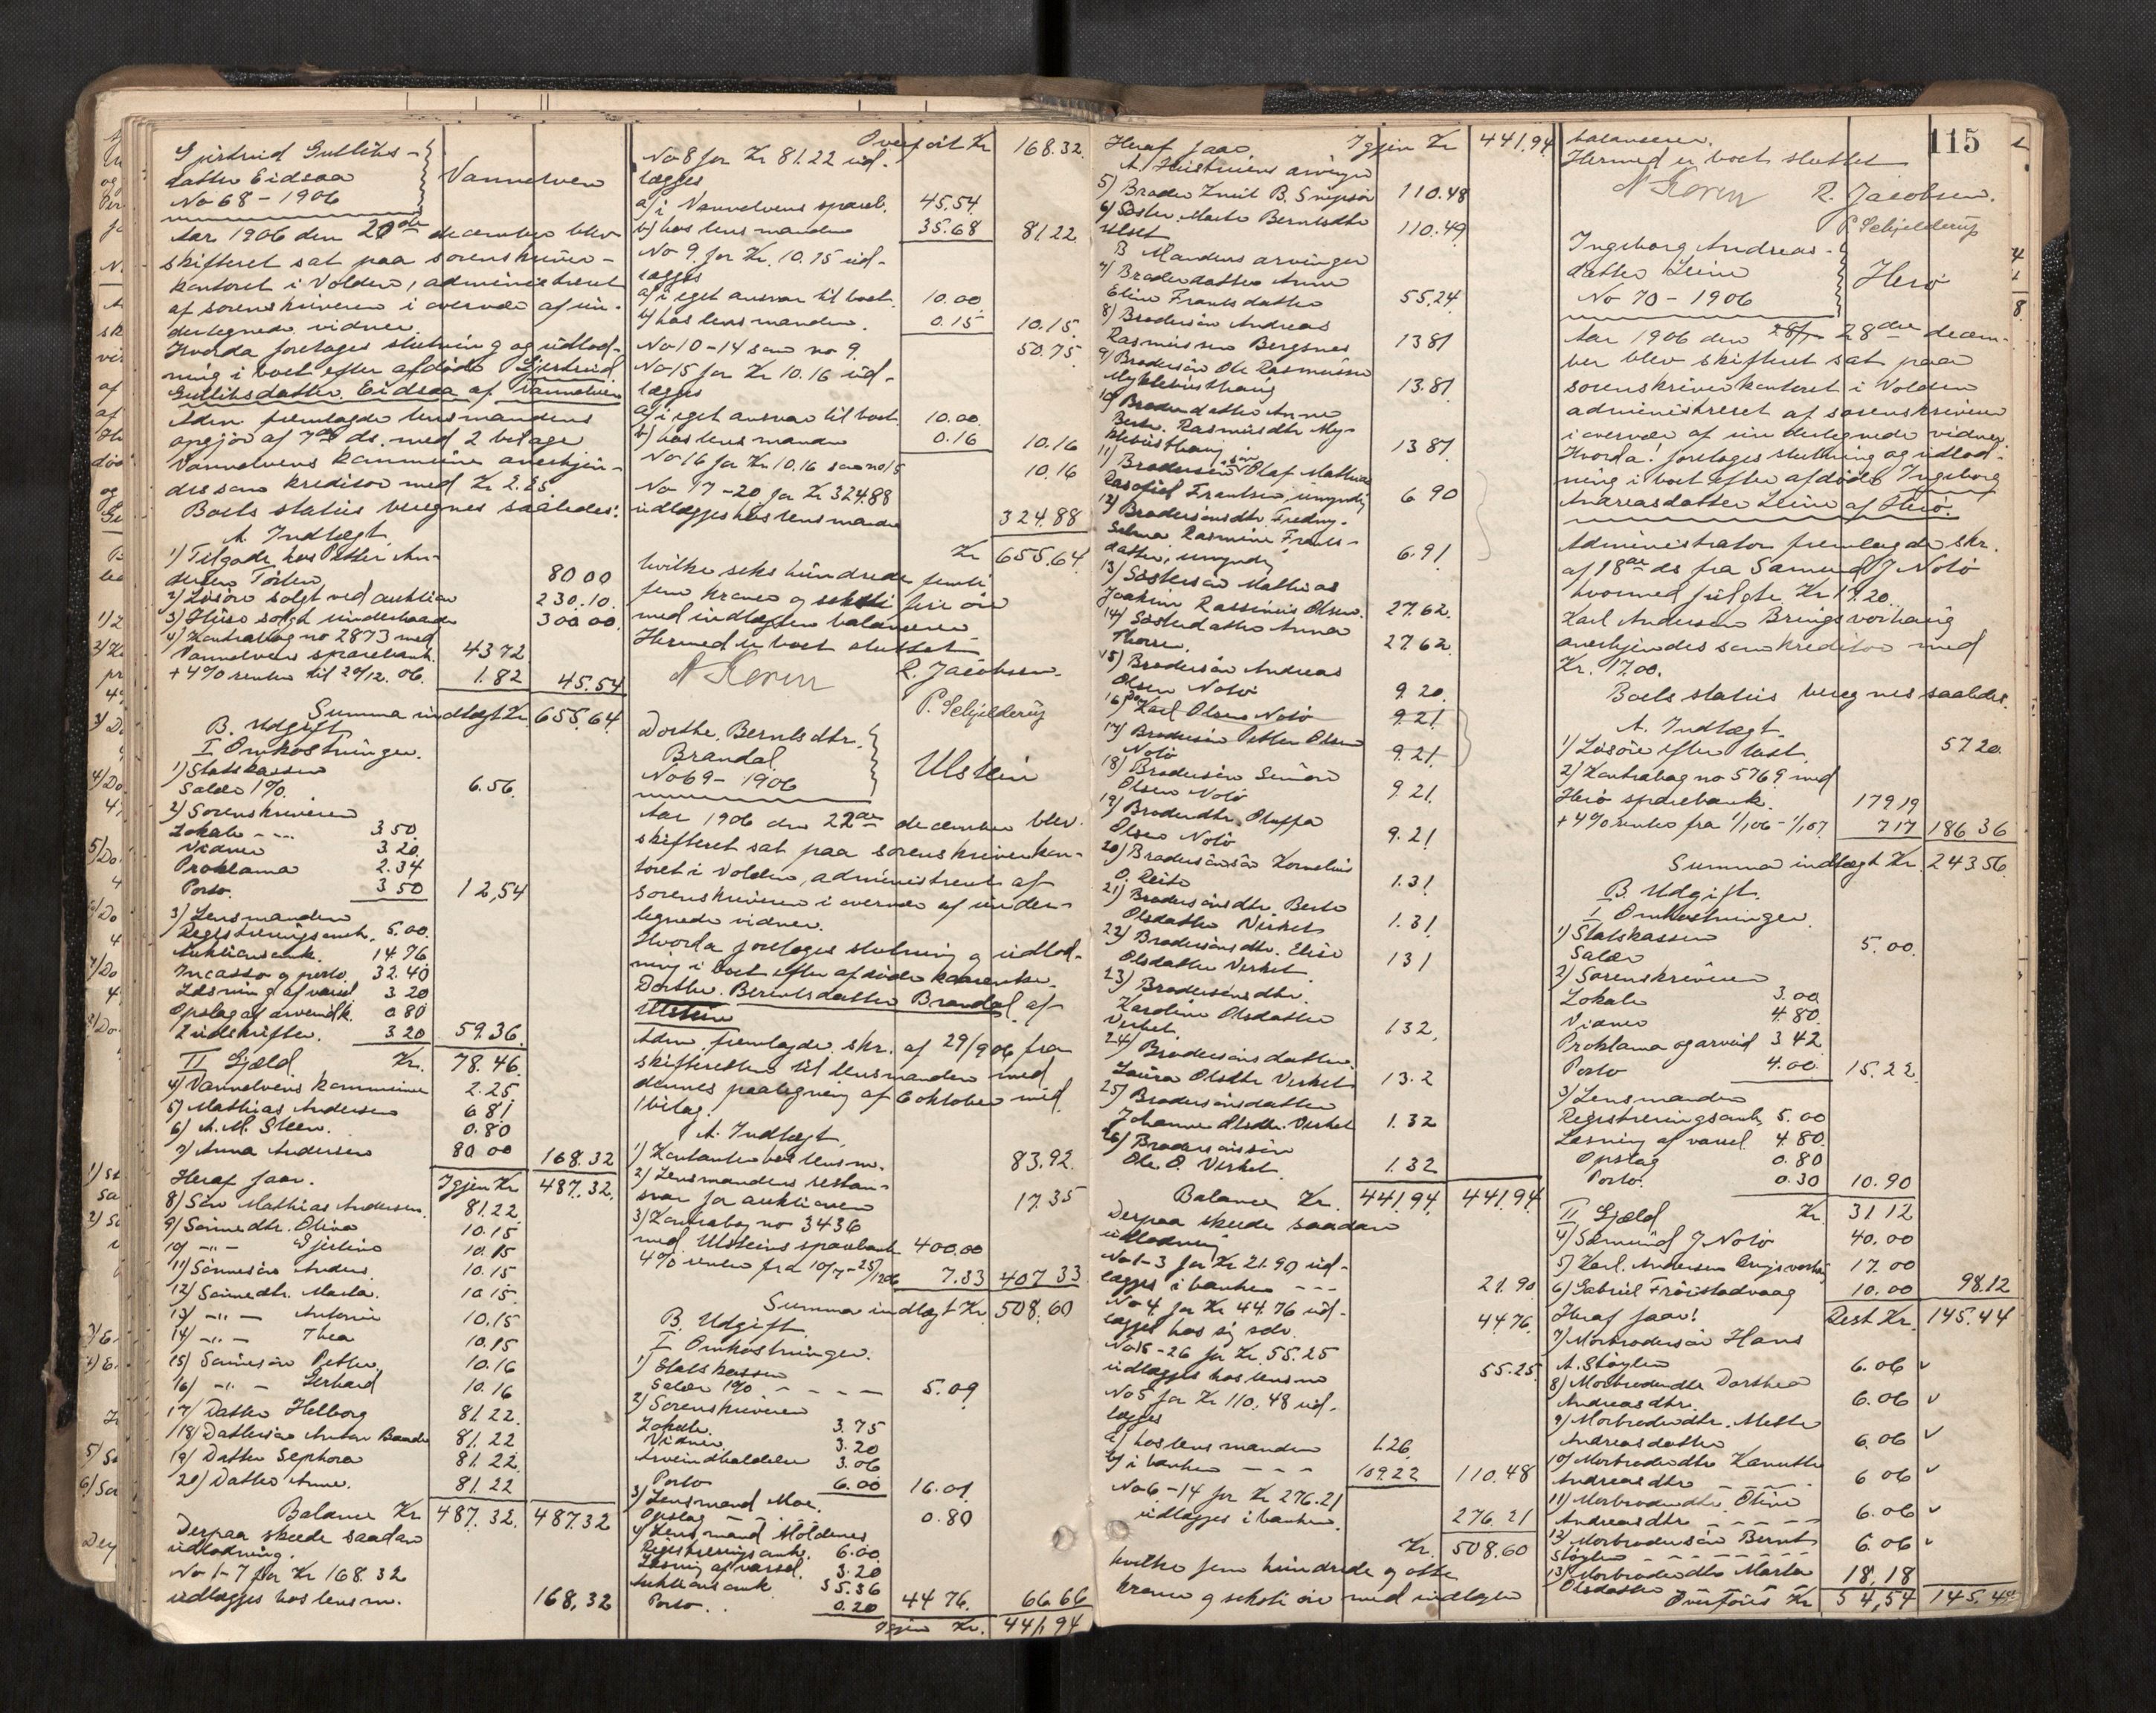 Gjertrud Gulliks-
datter Eidsaa Vannelven
No 68 - 1906
Aar 1906 den 20de december blev
skifteret sat paa sorenskriver-
kontoret i Volden, administreret
af sorenskriveren i overvær af un-
dertegnede vidner.
Hvorda foretages slutning og udlod-
ning i boet efter afdøde Gjertrud
Gulliksdatter Eidsaa af Vannelven
Adm. fremlagde lensmandens
opgjør af 7de ds. med 2 bilage
Vannelvens kommune anerkjen-
des som kreditor med Kr 2.25
Boets status beregnes saaledes:
A. Indtægt
1) Tilgode hos Petter An-
dersen 80 00
2) Løsøre solgt ved auktion 230.10.
3) Huse solgt underhaanden 300 00
4) Kontrabog no 2873 med
Vannelvens sparebank. 43 72
+ 4% renter til 20/12. 06. 1.82 45.54
Summa indtægt Kr. 655.64
B. Udgift
I Omkostninger.
1) Statskassen
Salær 1%. 6.56.
2) Sorenskriveren
Lokale - - - 3 50.
Vidner 3.20.
Proklama 2.34
Porto. 3 50 12,54
3) Lensmanden
Registreringsomk. 5.00.
Auktionsomk. 14 76
Incasso og porto. 32.40
Læsning af varsel 3 20
Opslag af arveindk. 0 80
2 udskrifter. 3 20 59.36.
II Gjæld Kr. 78.46.
4) Vannelvens kommune 2.25.
5) Mathias Andersen 6 81
6) A. M. Steen. 0.80
7) Anna Andersen 80 00 168.32
Heraf faar. Igjen Kr 487.32.
8) Søn Mathias Andersen. 81.22
9) Sønnedtr. Oliva 10.15
10) - " - Gjertine 10.15
11) Sønnesøn Anders. 10.15
12) Sønnedtr. Marta. 10.15.
13) - " - Antonie 10.15
14) - " - Thea 10.15
15) Sønnesøn Petter. 10.16
16) - " - Gerhard 10.16
17) Datter Helborg 81.22.
18) Dattersøn Anton Baade 81.22
19) Datter Sephora 81.22.
20) Datter Anne. 81.22
Balance Kr 487.32. 487.32
Derpaa skede saadan
udlodning.
No 1-7 for Kr 168.32
udlægges hos lensm. 168,32
Overført Kr 168.32.
No 8 for Kr 81.22 ud-
lægges
a) i Vannelvens spareb. 45.54.
b) hos lensmanden 35.68 81 22.
No 9 for Kr. 10.15 ud-
lægges
a) i eget ansvar til boet. 10.00.
b) hos lensmanden. 0.15 10.15.
No 10-14 som no 9. 50.75
No 15 for Kr 10.16 ud-
lægges
a) i eget ansvar til boet. 10.00.
b) hos lensmanden 0.16 10.16
No 16 for Kr 10.16 som no 15 10.16
No 17-20 for Kr 324.88
udlægges hos lensmanden 324.88
Kr 655.64.
hvilke seks hundrede femti
fem kroner og seksti fire øre
med indtægten balancerer
Hermed er boet sluttet
R. Jacobsen.
P. Schjelderup
Dorthe Berntsdtr.
Brandal. Ulstein
No 69 - 1906
Aar 1906 den 22de december blev
skifteret sat paa sorenskriverkon-
toret i Volden, administreret af
sorenskriveren i overvær af under-
tegnede vidner.
Hvorda foretages slutning og udlod-
ning i boet efter afdøde kaarenke
Dorthe Berntsdatter Brandal af
Ulstein
Adm. fremlagde skr. af 29/9 06 fra
skifteretten til lensmanden med
dennes paategning af 6 oktober med
1 bilag.
A. Indtægt.
1) Kontanter hos lensm. 83.92.
2) Lensmandens restan-
svar for auktionen 17.35
3) Kontrabog no 3436
med Ulsteins sparebank 400.00
4% renter fra 10/7 - 25/12 06 7.33 407 33
Summa indtægt Kr. 508.60
B. Udgift
I Omkostninger.
1) Statskassen
Salær 1% - - - - 5.09
2) Sorenskriveren
Lokale. 3.75
Vidner. 3.20
Arveindkaldelse 3.06
Porto 6.00 16.01
3) Lensmand Moe.
Opslag - - - - 0.80
4) Lensmand Moldenes
Registreringsomk. 6.00.
Læsning af varsel. 3.20
Auktionsomk 35.36
Porto. . 0.20 44 76. 66 66
Igjen Kr. 441.94
Heraf faar Igjen Kr 441.94
A. Hustruens arvinger
5) Broder Knut B. 110.48
6) Søster Marte Berntsdtr
Ulset 110.49
B Mandens arvinger
7) Broderdatter Anne
Eline Frantsdatter 55.24
8) Brodersøn Andreas
Rasmussen Bergsnes 13 81
9) Brodersøn Ole Rasmussen
Myklebusthaug 13.81.
10) Broderdatter Anne
Berte Rasmusdtr My-
klebusthaug 13 81
11) Brodersønssøn Olaf Mathias
Frantsen, umyndig 6 90
12) Brodersønsdtr. Fredny-
Selma Rasmine Frants-
datter, umyndig 6.91
13) Søstersøn Mathias
Joakim Rassinus Olsen. 27.62.
14) Søsterdatter Anna
Thorsen. 27 62.
15) Brodersøn Andreas
Olsen Nolø 9.20.
16) do Karl Olsen Nolø 9.21
17) Brodersøn Petter Olsen
Nolø 9.21.
18) Brodersøn Simon
Olsen Nolø 9.21.
19) Broderdtr. Oluffa
Olsen Nolø 9.21
20) Brodersønssøn Kornelius
O. Reite 1.31.
21) Brodersønsdtr. Berte
Olsdatter Verket 1.31.
22) Brodersønsdtr. Elise
Olsdatter Verket. 1 31
23) Brodersønsdtr.
Karoline Olsdatter
Verket. 1 32.
24) Brodersønsdatter
Laura Olsdtr Verket 1 3.2
25) Brodersønsdatter
Johanne Olsdtr. Verket 1.32
26) Brodersønssøn
Ole. O. Verket 1.32
Balance Kr. 441.94. 441.94
Derpaa skede saadan
udlodning
No 1-3 for Kr 21.90 ud-
lægges i banken - - - 21.90
No 4 for Kr 44.76 ud-
lægges hos sig selv. 44 76.
No 15-26 for Kr. 55.25
udlægges hos lensm 55.25
No 5 for Kr 110.48 ud-
lægges
a) hos lensmanden 1.26
b) i banken - - - 109.22 110.48
No 6-14 for Kr 276.21
udlægges i banken. 276.21
Kr. 508.60
hvilke fem hundrede og otte
kroner og seksti øre med indtægten
115
balancerer.
Hermed er boet sluttet
R. Jacobsen.
P. Schjelderup
Ingeborg Andreas-
datter Leine Herø
No 70 - 1906
Aar 1906 den 28de decem-
ber blev skifteret sat paa
sorenskriverkontoret i Volden
administreret af sorenskriveren
i overvær af undertegnede vidner.
Hvorda! foretages slutning og udlod-
ning i boet efter afdøde Ingeborg
Andreasdatter Leine af Herø.
Administrator fremlagde skr.
af 18de ds fra Samund J Nolø
hvormed fulgte Kr 17.20.
Karl Andersen Bringsvorhaug
anerkjendes som kreditor med
Kr. 17.00.
Boets status beregnes saaledes.
A. Indtægt.
1) Løsøre efter takst. 57 20.
2) Kontrabog no 5769 med
Herø sparebank. 179 19
+ 4% renter fra 1/1 06 - 1/1 07. 7 17 186 36
Summa indtægt Kr. 243 56.
B. Udgift.
I Omkostninger.
1) Statskassen
Salær 5.00.
2) Sorenskriveren
Lokale 3.00.
Vidner 4.80.
Proklama og arveind 3 42.
Porto 4.00. 15.22.
3) Lensmanden
Registreringsomk. 5.00
Læsning af varsel 4 80.
Opslag 0.80
Porto. 0.30 10.90
II Gjæld Kr. 31 12
4) Samund J Nolø 40.00
5) Karl Andersen 17.00
6) Gabriel Frøistadvaag 10.00 98.12
Heraf faar! Rest Kr. 145.44
7) Morbrodersøn Hans
A. Støylen 6.06 v
8) Morbroderdtr Dorthea
Andreasdtr. 6.06 v
9) Morbroderdtr. Mette
Andreasdatter 6.06 v
10) Morbroderdtr
Andreasdtr - - - - 6 06 v
11) Morbroderdtr. Oline
Andreasdtr - - - - - 6.06 v
12) Morbrodersøn Bernt
Støylen - - - - - - 6.06 v
13) Morbroderdtr Marta
Olsdatter 18,18
Overføres Kr 54,54 145.44